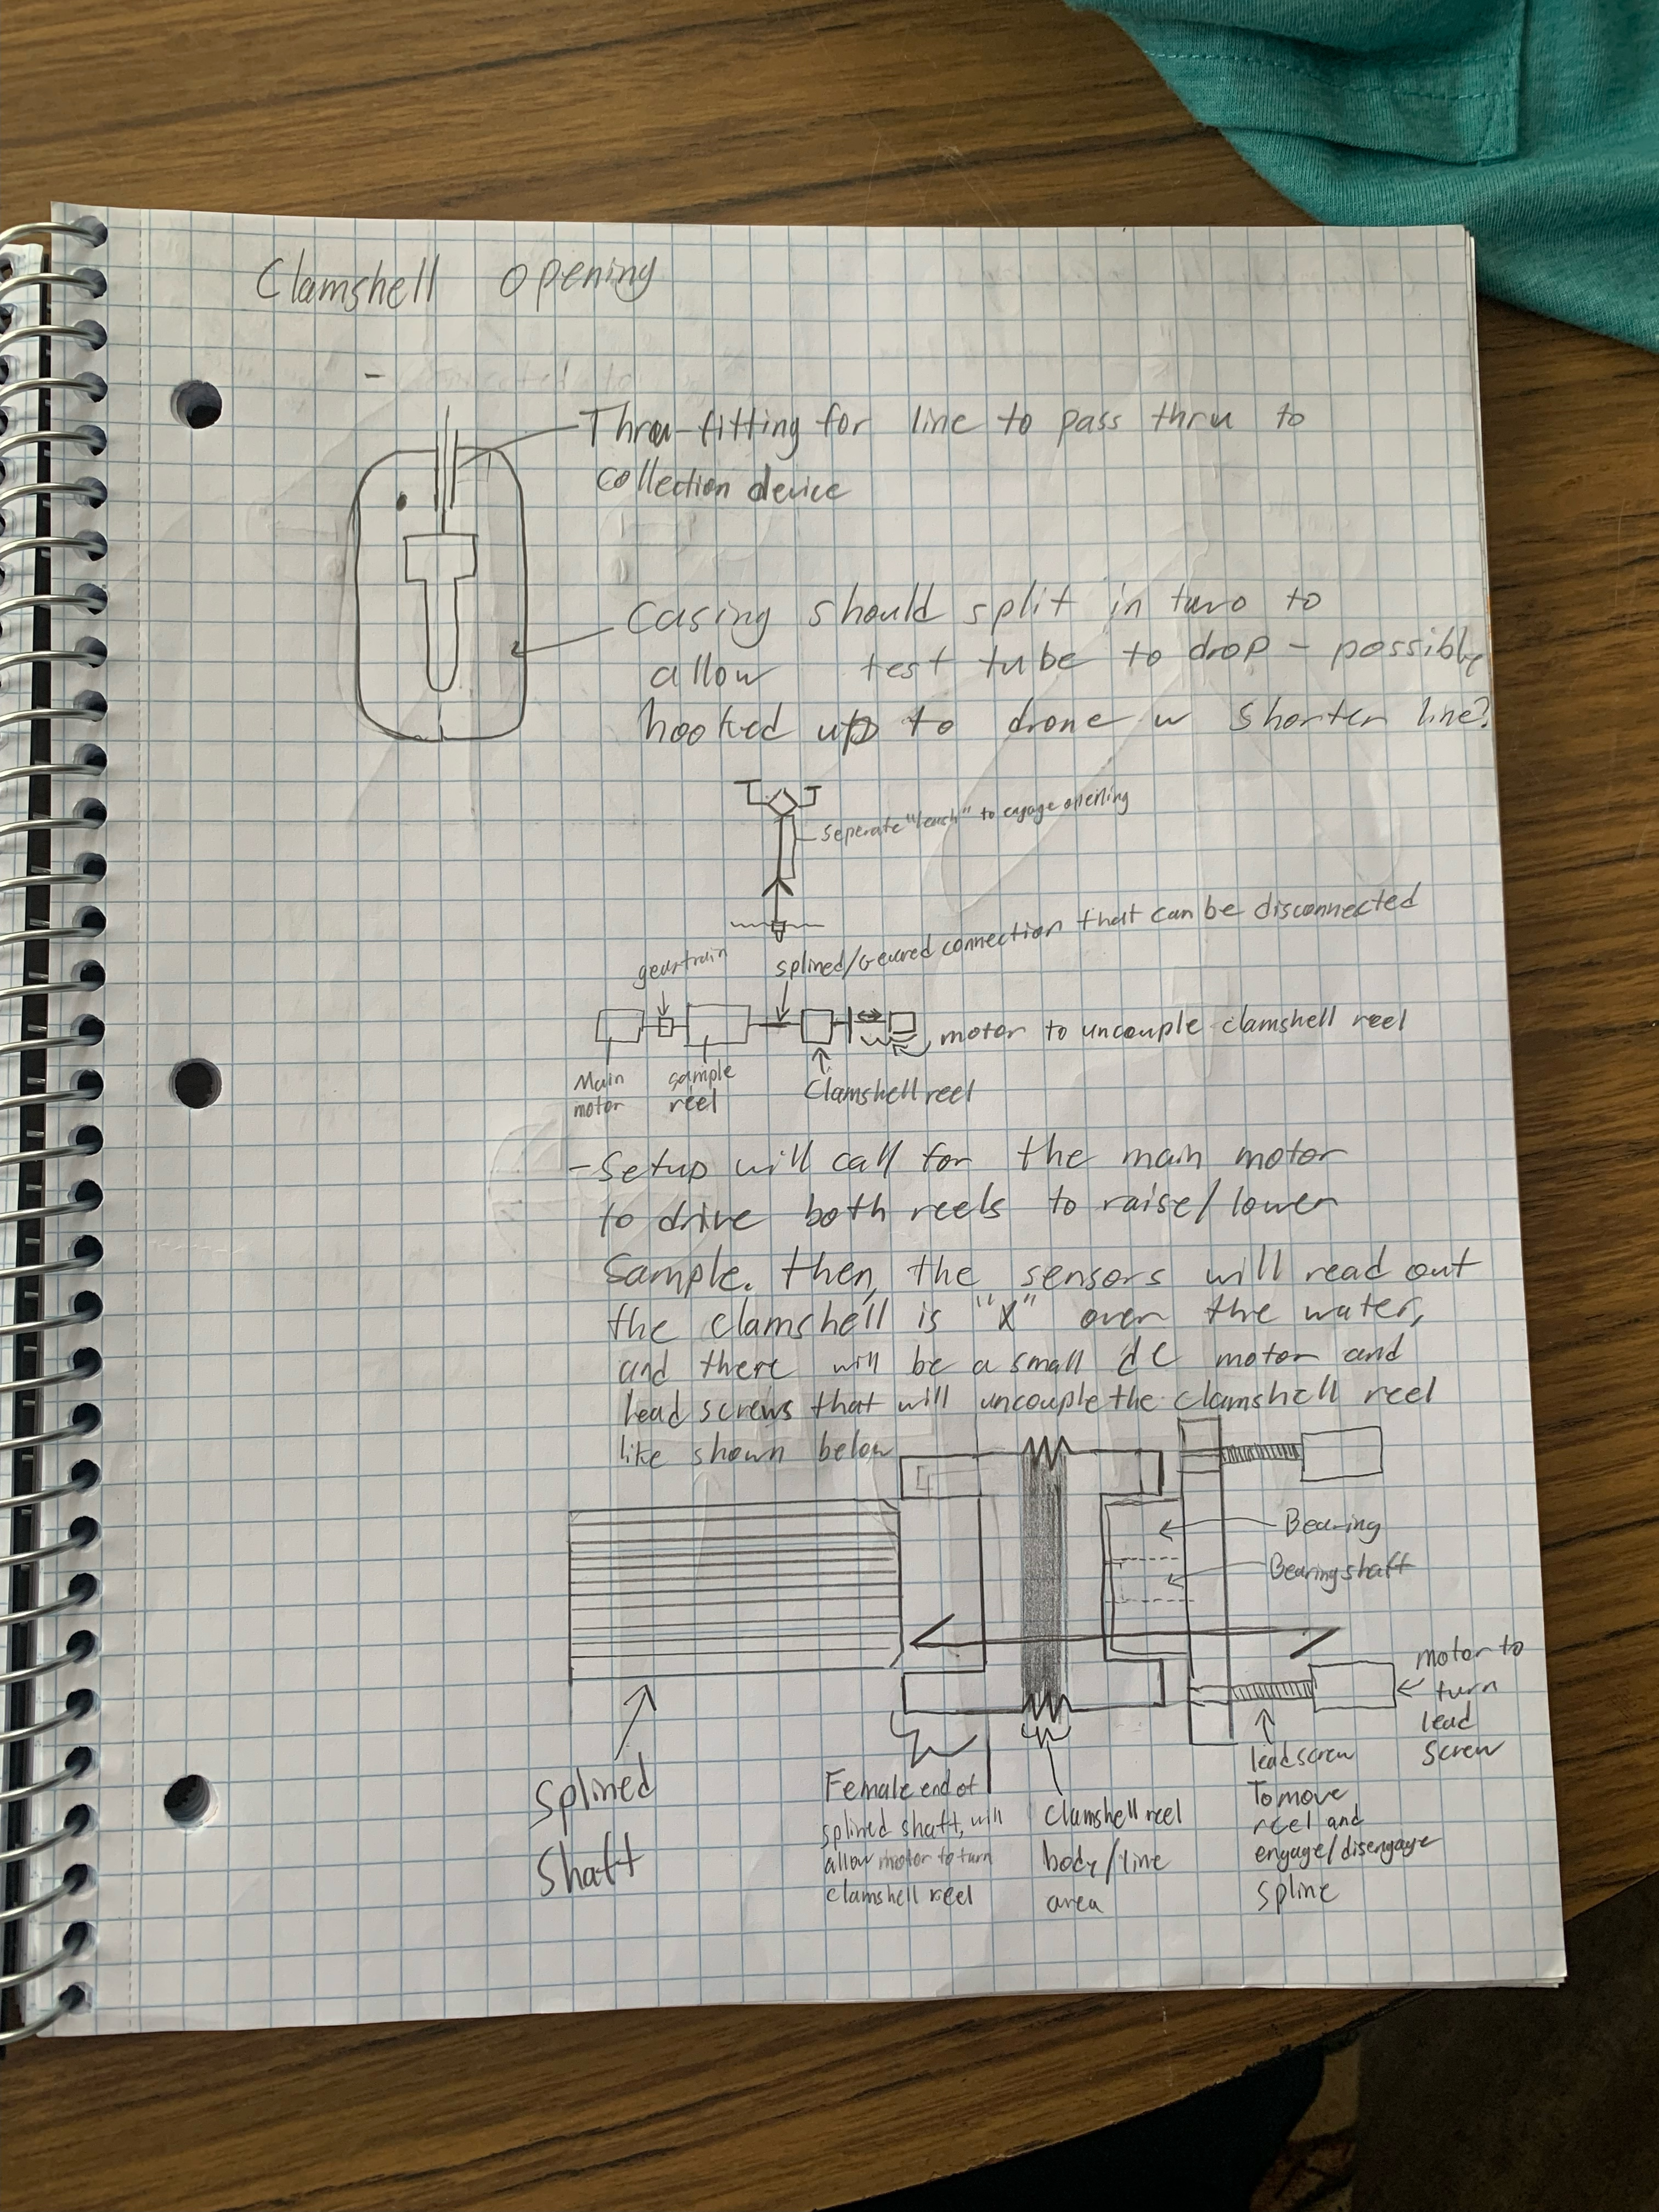 Clamshell opening
-
Thru-fitting for line to pass thru to
collection device
casing should split in two to
allow test tube to drop - possibly
hooked up to drone w shorter line?
seperate "leash" to engage opening
splined/Geared connection that can be disconnected
geartrain
motor to uncouple clamshell reel
Main
motor
sample
reel
Clamshell reel
- Setup will call for the main motor
to drive both reels to raise/lower
Sample. then, the sensors will read out
the clamshell is "X" over the water,
and there will be a small dc motor and
lead screws that will uncouple the clamshell reel
like shown below
Bearing
Bearing shaft
motor to
turn
lead
screw
Splined
Shaft
Female end of
splined shaft, will
allow motor to turn
clamshell reel
clamshell reel
body/line
area
leadscrew
To move
reel and
engage/disengage
spline